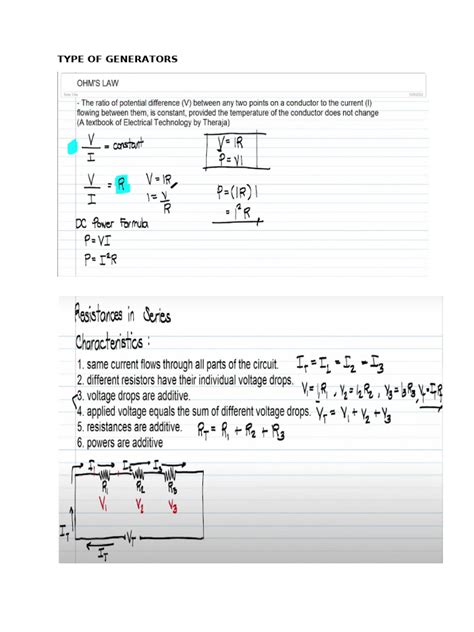 TYPE OF GENERATORS
OHM'S LAW
- The ratio of potential difference (V) between any two points on a conductor to the current (I)
flowing between them, is constant, provided the temperature of the conductor does not change
(A textbook of Electrical Technology by Theraja)
V/I = constant
V = IR
P = VI
V/I = R
V = IR
I = V/R
P = (IR) I
= I²R
DC Power Formula
P = VI
P = I²R
Resistances in Series
Characteristics:
1. same current flows through all parts of the circuit. I_T = I_1 = I_2 = I_3
2. different resistors have their individual voltage drops. V_1 = IR_1, V_2 = I_2R_2, V_3 = I_3R_3, V = IR
3. voltage drops are additive.
4. applied voltage equals the sum of different voltage drops. V_T = V_1 + V_2 + V_3
5. resistances are additive. R_T = R_1 + R_2 + R_3
6. powers are additive
I_1 I_2 I_3
R_1 R_2 R_3
V_1 V_2 V_3
I_T
V_T
I_T